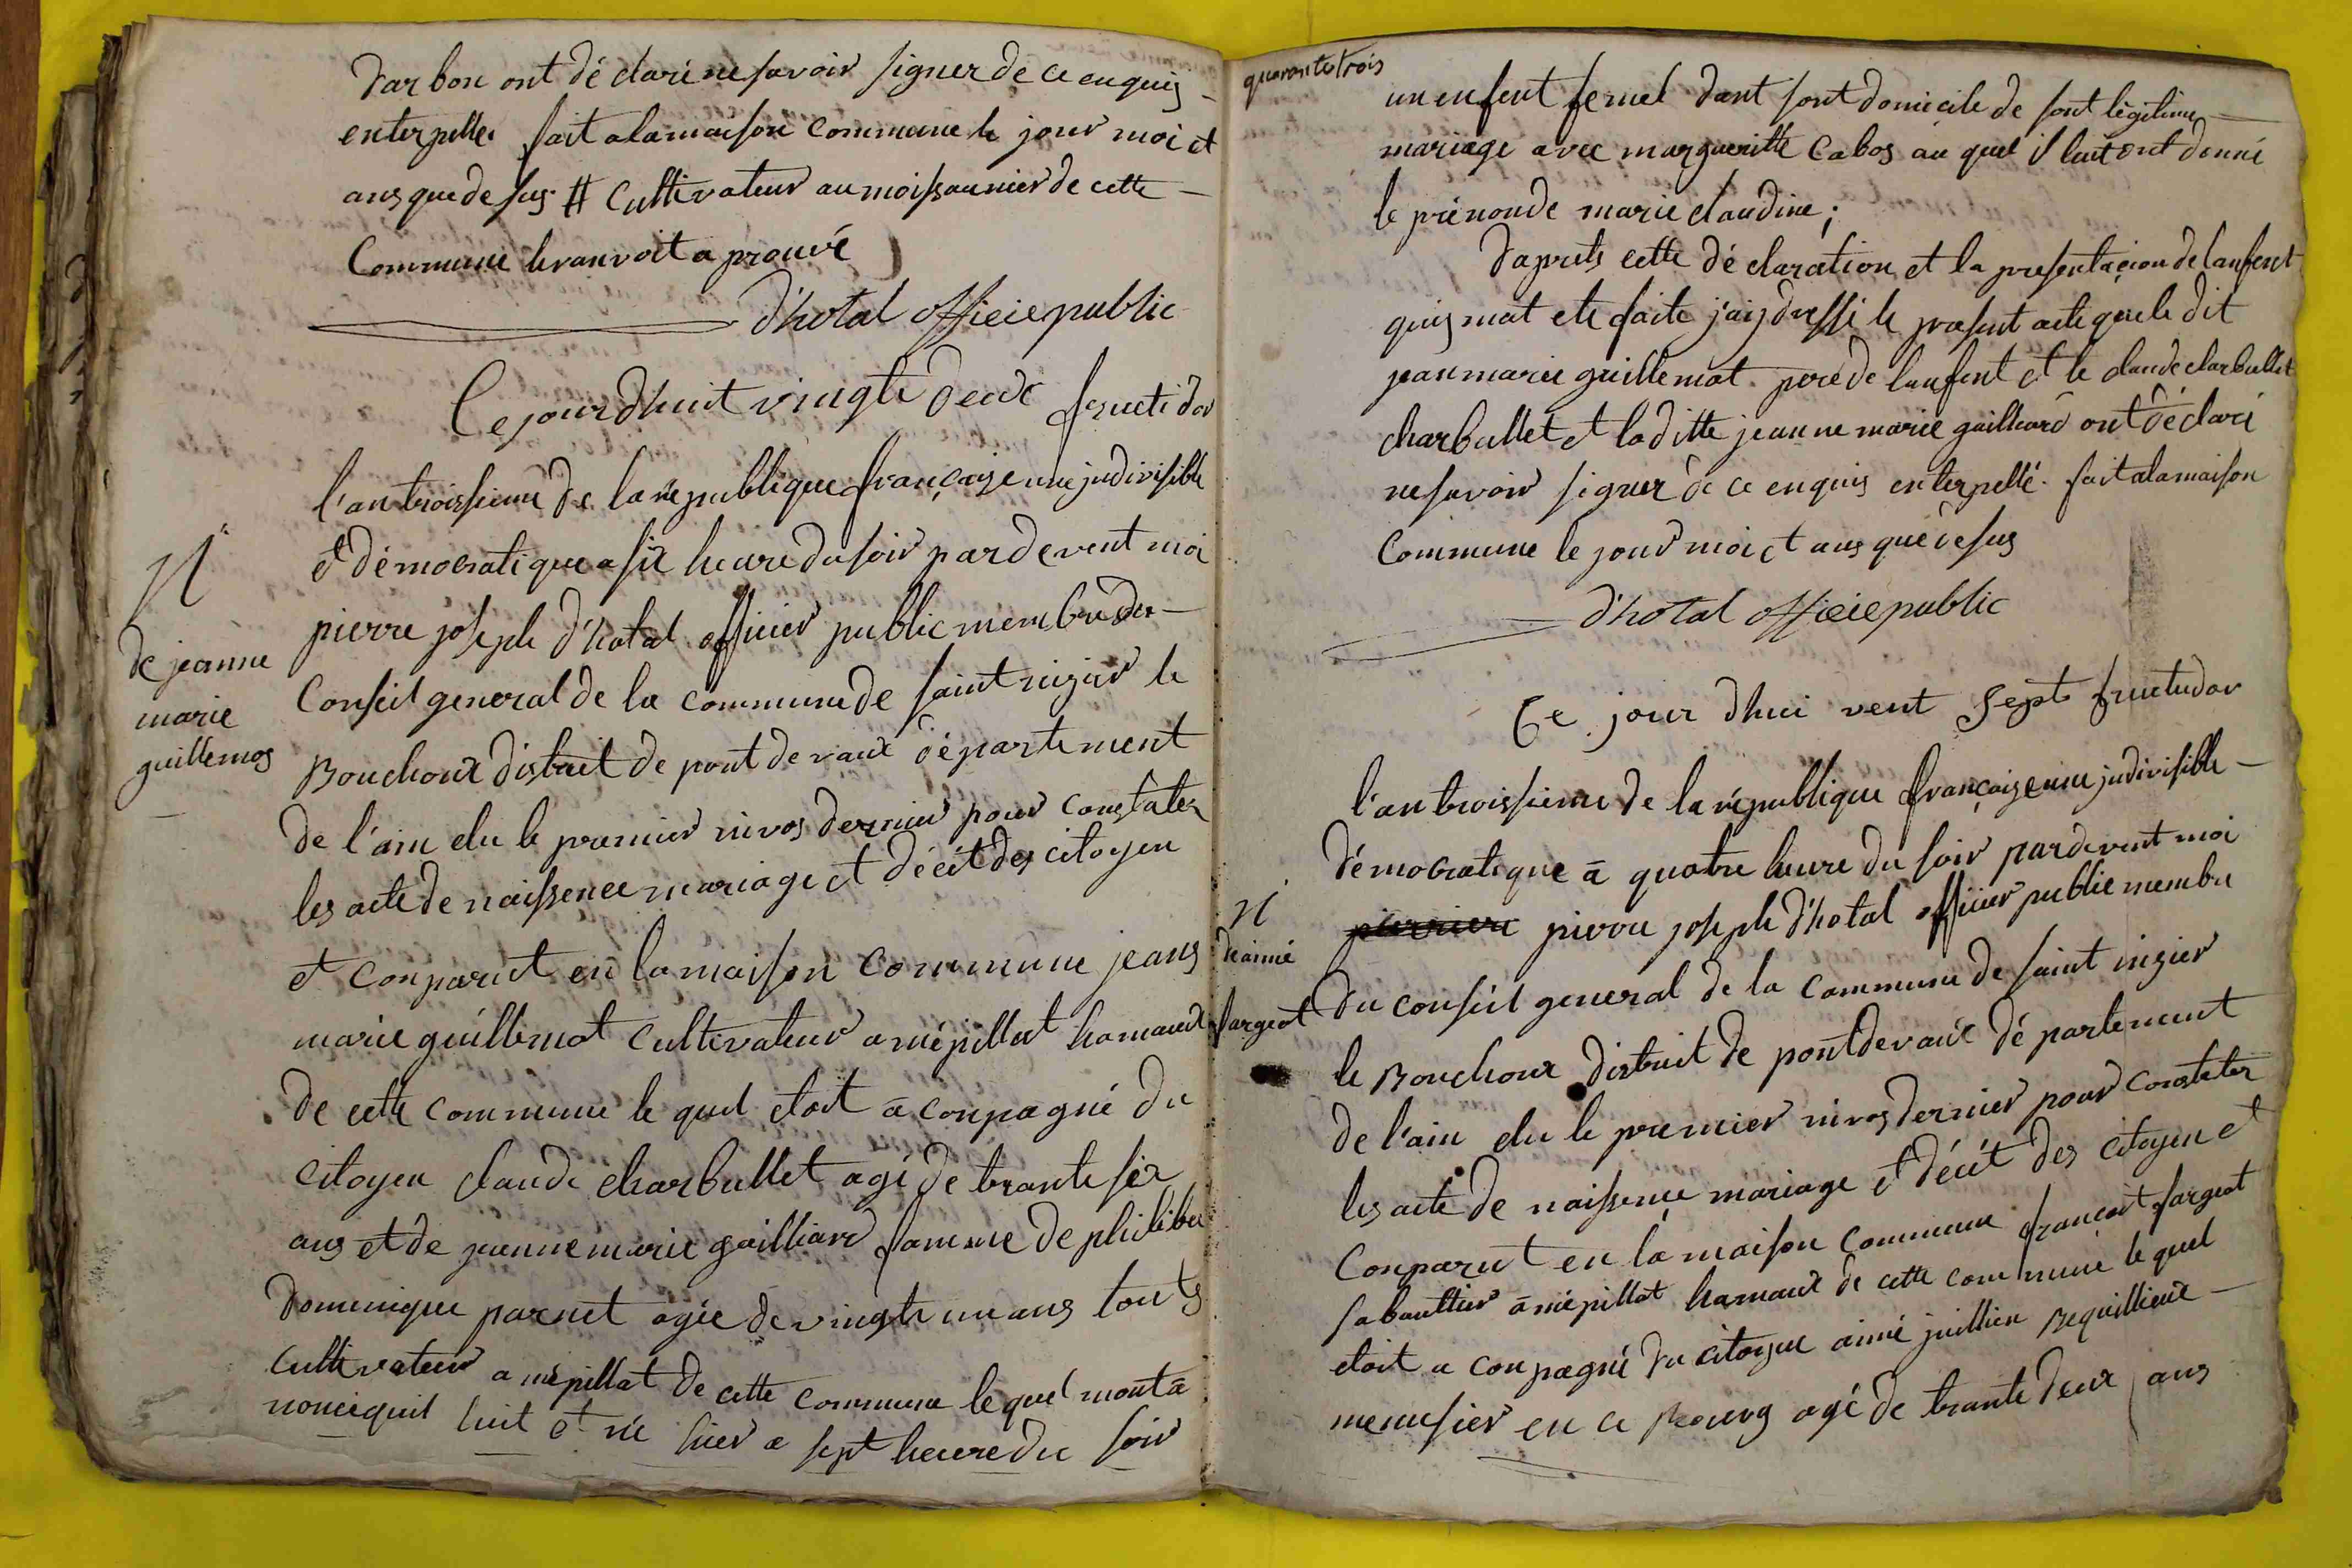 darbon ont déclaré ne savoir signer de ce enquis
enterpelles fait a la maison commune le jour moi et
ans que de sus # cultivateur au moissonnier de cette
Commune le ranvoit a prouvé
d'hotal officie public
Ce jourdhuit vingte deux fructidor
l'an troissieme de la republique françaize une jndivisible
et démocratique a six heure du soir pardevent moi
pierre joseph d'hotal officier public membre du
Conseil general de la commune de saint nizier le
Bouchoux distrit de pont de vaux département
de l'ain elu le premier nivos dernier pour constater
les acte de naissence mariage et décét des citoyen
et conparut en la maison commune jeans
marie guillemot cultivateur a mépillat hamaux
de cette commune le quel etoit a conpagné du
citoyen claude charbullet agé de trante six
ans et de jeanne marie gailliard famme de philibe
dominique parnet agée de vingte un ans touts
cultivateur a mépillat de cette commune le quel mont a
noncé quil luit et né hier a sept heure du soir
N
de jeanne
marie
guillemos
quarante trois
un enfent femel dant sont domicile de sont légitime
mariage avec margueritte Cabos au quel il luit ont donné
le prénon de marie claudine ;
daprets cette déclaration et la presentacion de lanfent
quis mat ete faite j'aij dressé le present acte que le dit
jean marie guillemot pere de lanfent et le claude charbullet
charbullet et laditte jeanne marie gailliard ont déclaré
ne savoir signer de ce enquis enterpellé. fait a la maison
Commune le jour moi et ans que de sus
d'hotal officie public
Ce jour dhui vent sept fructudor
l'an troissieme de la république françaize une jndivisible
démocratique a quatre heure du soir pardevent moi
pierre joseph d'hotal officier public membre
du conseil general de la commune de saint nizier
le Bouchoux distrit de pontdevaux département
de l'ain elu le premier nivos dernier pour constater
les acte de naissence mariage et décét des citoyen et
Conparut en la maison commune françoit fargeot
sabouttier a mépillat hamaux de cette commune le quel
etoit a conpagné du citoyen aimé juillien Bequillieux
menusier en ce Bourg agé de trante deux ans
N
de aimé
fargeot